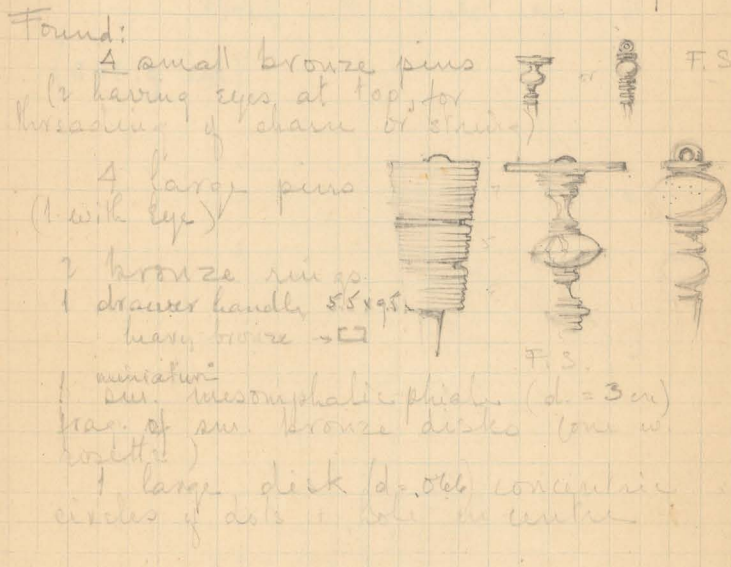 Found:
4 small bronze pins or F.S.
(2 having eyes at top, for
threading of chain or string)
4 large pins
(1 with Eye)
2 bronze rings
1 drawer handle 5.5 x 9.5
heavy bronze →
F.S.
miniature
1 sm. mesomphalic phiale (d. = 3 cm)
frag. of sm. bronze disks (one w.
rosette)
1 large disk (d=.066) concentric
circles of dots + hole in centre